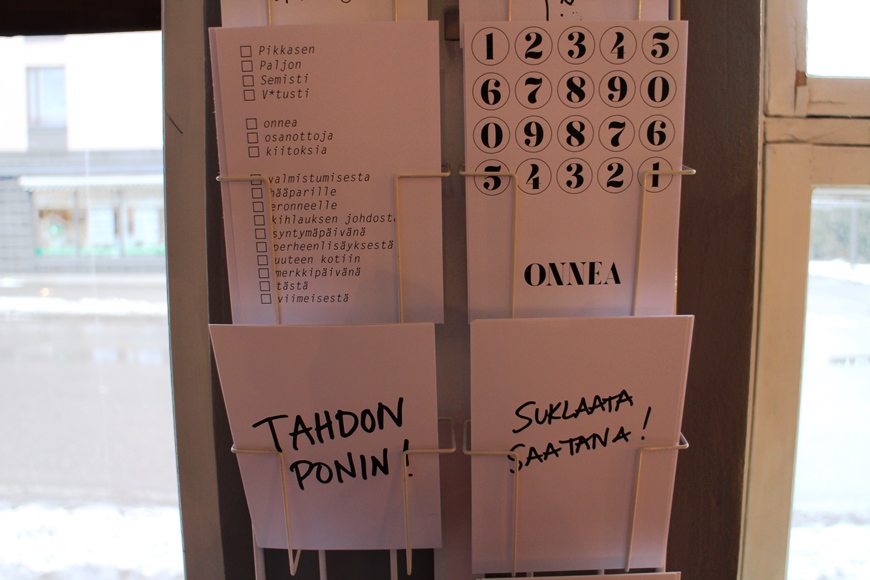 Pikkasen
Paljon
Semisti
V*tusti
onnea
osanottoja
kiitoksia
valmistumisesta
hääparille
eronneelle
kihlauksen johdosta
syntymäpäivänä
perheenlisäyksestä
uuteen kotiin
merkkipäivänä
tästä
viimeisestä
1 2 3 4 5
6 7 8 9 0
0 9 8 7 6
5 4 3 2 1
ONNEA
TAHDON
PONIN!
SUKLAATA
SAATANA!